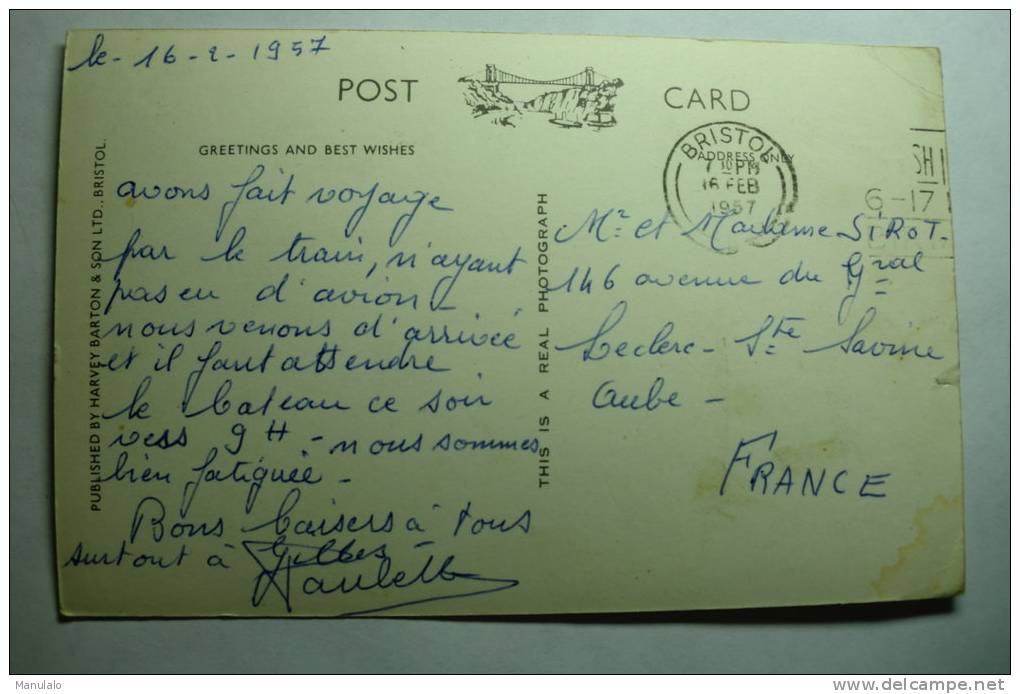 le - 16 - 2 - 1957
POST CARD
GREETINGS AND BEST WISHES
ADDRESS ONLY
BRISTOL
7 PM
16 FEB
1957
SH
6-17
avons fait voyage
par le train, n'ayant
pas eu d'avion -
nous venons d'arrivée
et il faut attendre
le bateau ce soir
vers 9H - nous sommes
bien fatiguée -
Bons baisers à tous
surtout à Gilles
Paulette
Mr et Madame SIROT.
146 avenue du Gral
Leclerc - Ste Savine
Aube -
FRANCE
PUBLISHED BY HARVEY BARTON & SON LTD., BRISTOL.
THIS IS A REAL PHOTOGRAPH
Manulalo
delcampe.net